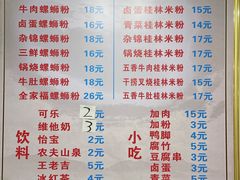 牛肉螺蛳粉 18元
卤蛋桂林米粉 15元
卤味螺蛳粉 18元
青菜桂林米粉 15元
杂锦螺蛳粉 18元
杂锦桂林米粉 17元
三鲜螺蛳粉 16元
锅烧桂林米粉 17元
锅烧螺蛳粉 18元
五香牛肉桂林米粉 17元
牛肚螺蛳粉 18元
干捞叉烧桂林米粉 17元
全家福螺蛳粉 26元
五香牛肚桂林米粉 17元
饮料
可乐 2元
维他奶 3元
怡宝 2元
农夫山泉 2元
王老吉 5元
冰红茶 4元
小吃
加肉 15元
加粉 3元
鸭脚 4元
腐竹 5元
豆腐串 3元
卤蛋 2元
青菜 3元